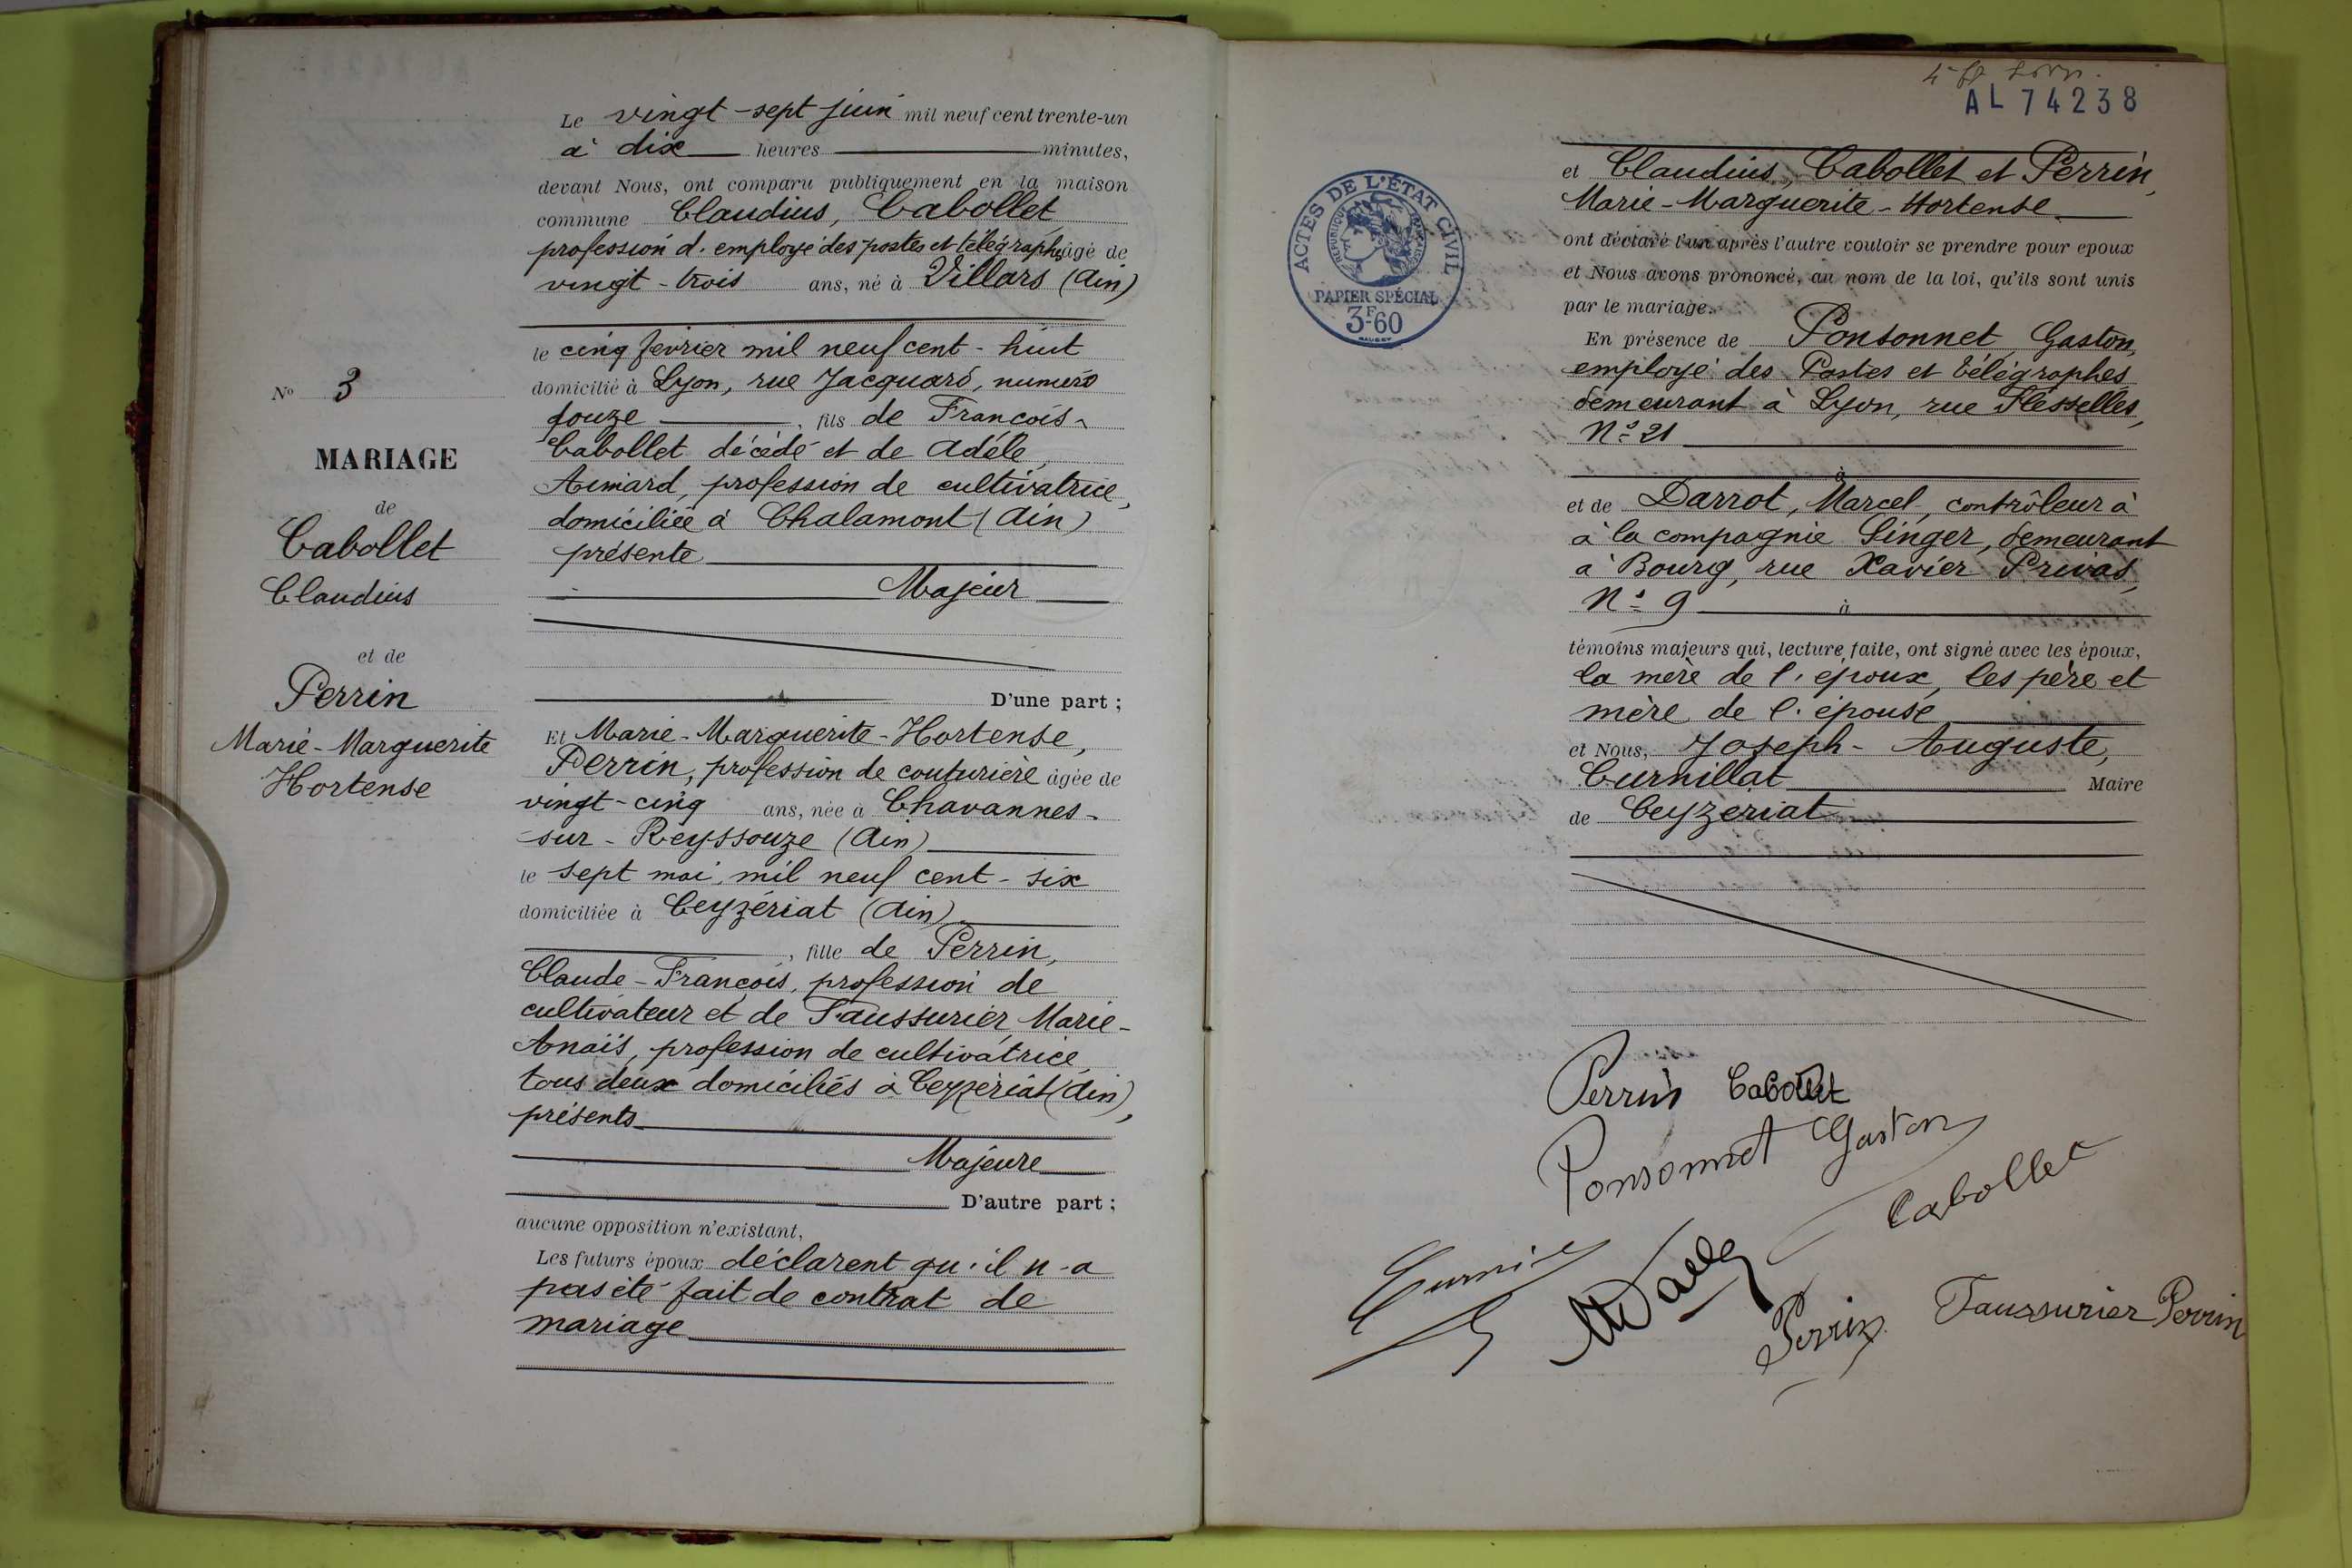 Le vingt-sept juin mil neuf cent trente-un
à dix heures minutes,
devant Nous, ont comparu publiquement en la maison
commune Claudius, Cabollet
profession d'employé des postes et télégraphes âgé de
vingt-trois ans, né à Villars (Ain)
le cinq février mil neuf cent-huit
domicilié à Lyon, rue Jacquard, numéro
douze, fils de François-
Cabollet décédé et de Adèle,
Aimard, profession de cultivatrice,
domiciliée à Chalamont (Ain)
présente
Majeur
D'une part ;
No 3
MARIAGE
de
Cabollet
Claudius
et de
Perrin
Marie-Marguerite
Hortense
Et Marie-Marguerite-Hortense,
Perrin, profession de couturière âgée de
vingt-cinq ans, née à Chavannes-
sur-Reyssouze (Ain)
le sept mai mil neuf cent-six
domiciliée à Ceyzériat (Ain)
, fille de Perrin,
Claude-François, profession de
cultivateur et de Faussurier, Marie-
Anaïs, profession de cultivatrice
tous deux domiciliés à Ceyzériat (Ain),
présents
Majeure
D'autre part ;
aucune opposition n'existant,
Les futurs époux déclarent qu'il n'a
pas été fait de contrat de
mariage
AL 74238
ACTES DE L'ÉTAT CIVIL
RÉPUBLIQUE FRANÇAISE
PAPIER SPÉCIAL
3F-60
et Claudius, Cabollet et Perrin,
Marie-Marguerite-Hortense
ont déclaré l'un après l'autre vouloir se prendre pour époux
et Nous avons prononcé, au nom de la loi, qu'ils sont unis
par le mariage.
En présence de Ponsonnet, Gaston,
employé des Postes et Télégraphes
demeurant à Lyon, rue Flesselles,
N° 21
à
et de Darrot, Marcel, contrôleur à
à la compagnie Singer, demeurant
à Bourg, rue Xavier Privas,
N° 9 à
témoins majeurs qui, lecture faite, ont signé avec les époux,
la mère de l'époux, les père et
mère de l'épouse
et Nous, Joseph-Auguste,
Curnillat Maire
de Ceyzeriat
Perrin Cabollet
Ponsonnet Gaston
Cabollet
Perrin
Faussurier Perrin